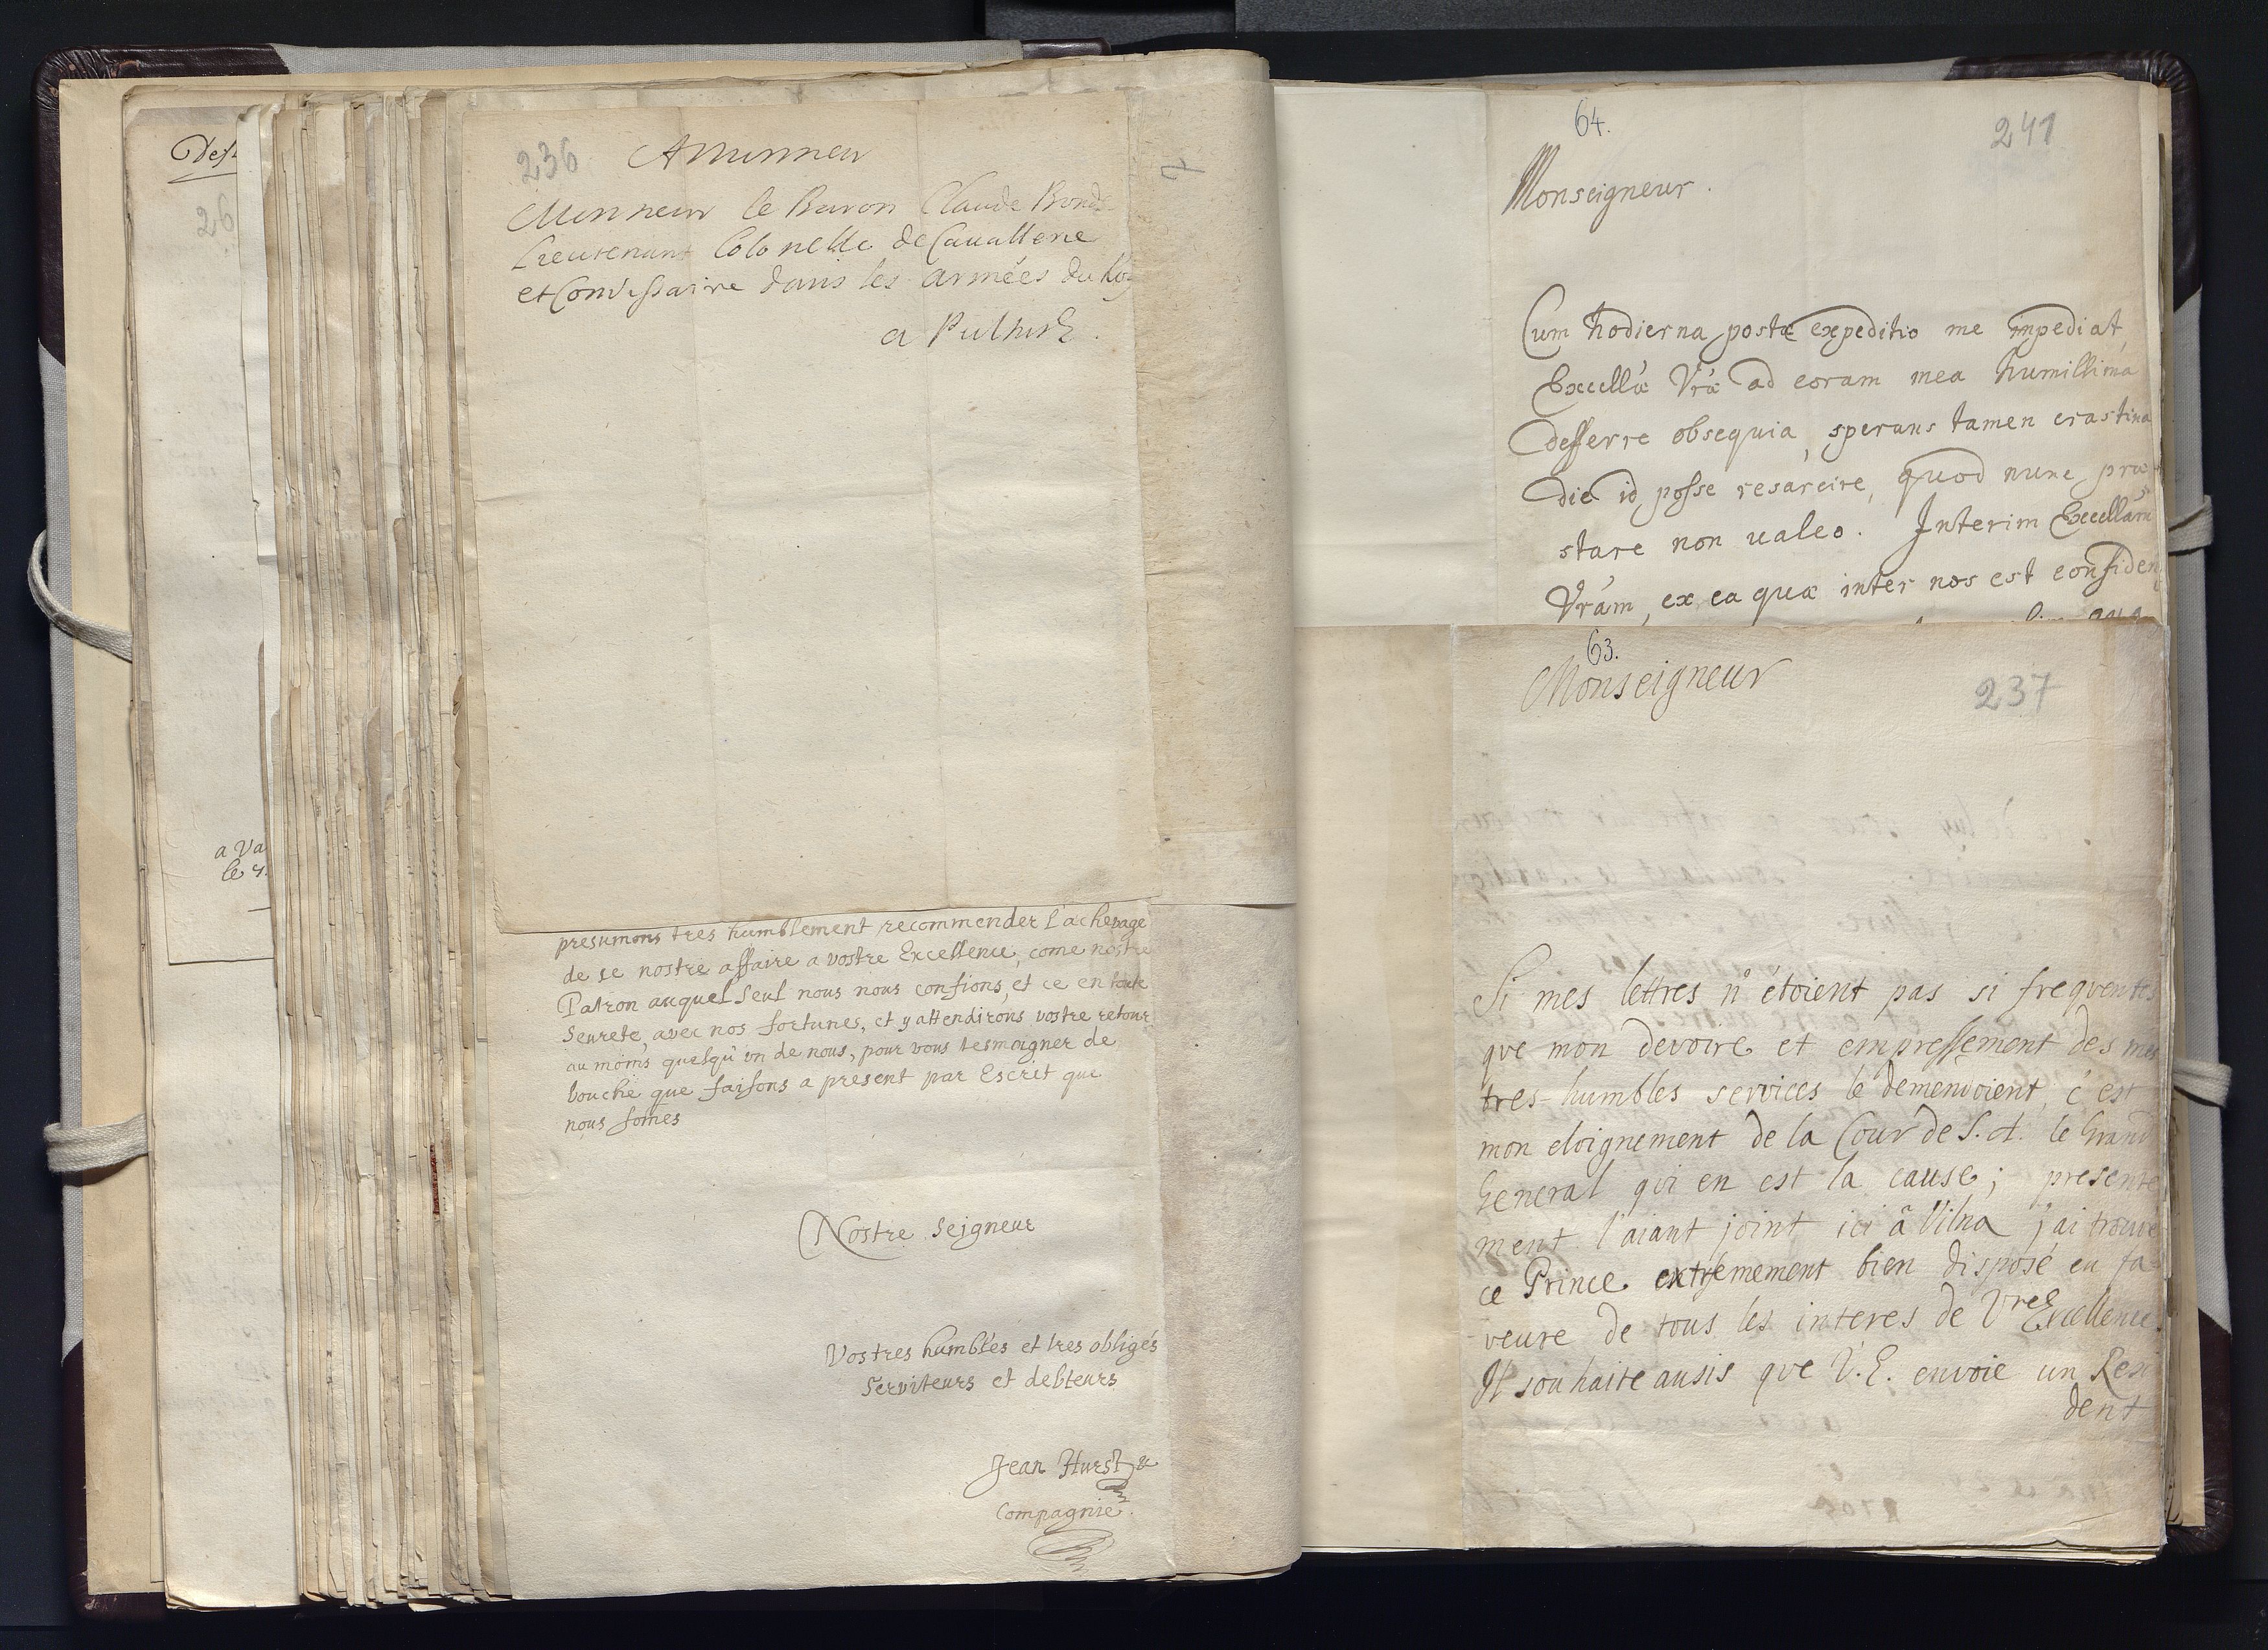 26
a Va
le
236
A Monsieur
Monsieur le Baron Claude Bonde
Lieutenant Colonelle de Cavallerie
et Comissaire dans les armées du Roy
a Pultusk.
presumons tres humblement recommender l'achevage
de se nostre affaire a vostre Excellence, come nostre
Patron auquel Seul nous nous confions, et ce en toute
Seurete, avec nos fortunes, et y attendirons vostre retour
au moins quelqu'un de nous, pour vous tesmoigner de
bouche que faisons a present par Escrit que
nous somes
Nostre Seigneur
Vos tres humbles et tres obligés
Serviteurs et debteurs
Jean Hurst &
Compagnie.
64.
241
Monseigneur.
Cum hodierna postæ expeditio me impediat,
Excellæ Vræ ad coram mea humillima
defferre obsequia, sperans tamen crastina
die id posse resarcire, quod nunc præ
stare non valeo. Interim Excellam
Vram, ex ea quæ inter nos est confiden
63.
Monseigneur
237
Si mes lettres n'étoient pas si frequentes
que mon devoire et empressement des mes
tres-humbles services le demendoient, c'est
mon eloignement de la Cour de S. A. le Grand
General qui en est la cause; presente
ment l'aiant joint ici â Vilna j'ai trouve
ce Prince extrémement bien disposé en fa
veure de tous les interes de Vre Excellence.
Il souhaite ausis que V. E. envoie un Resi
dent